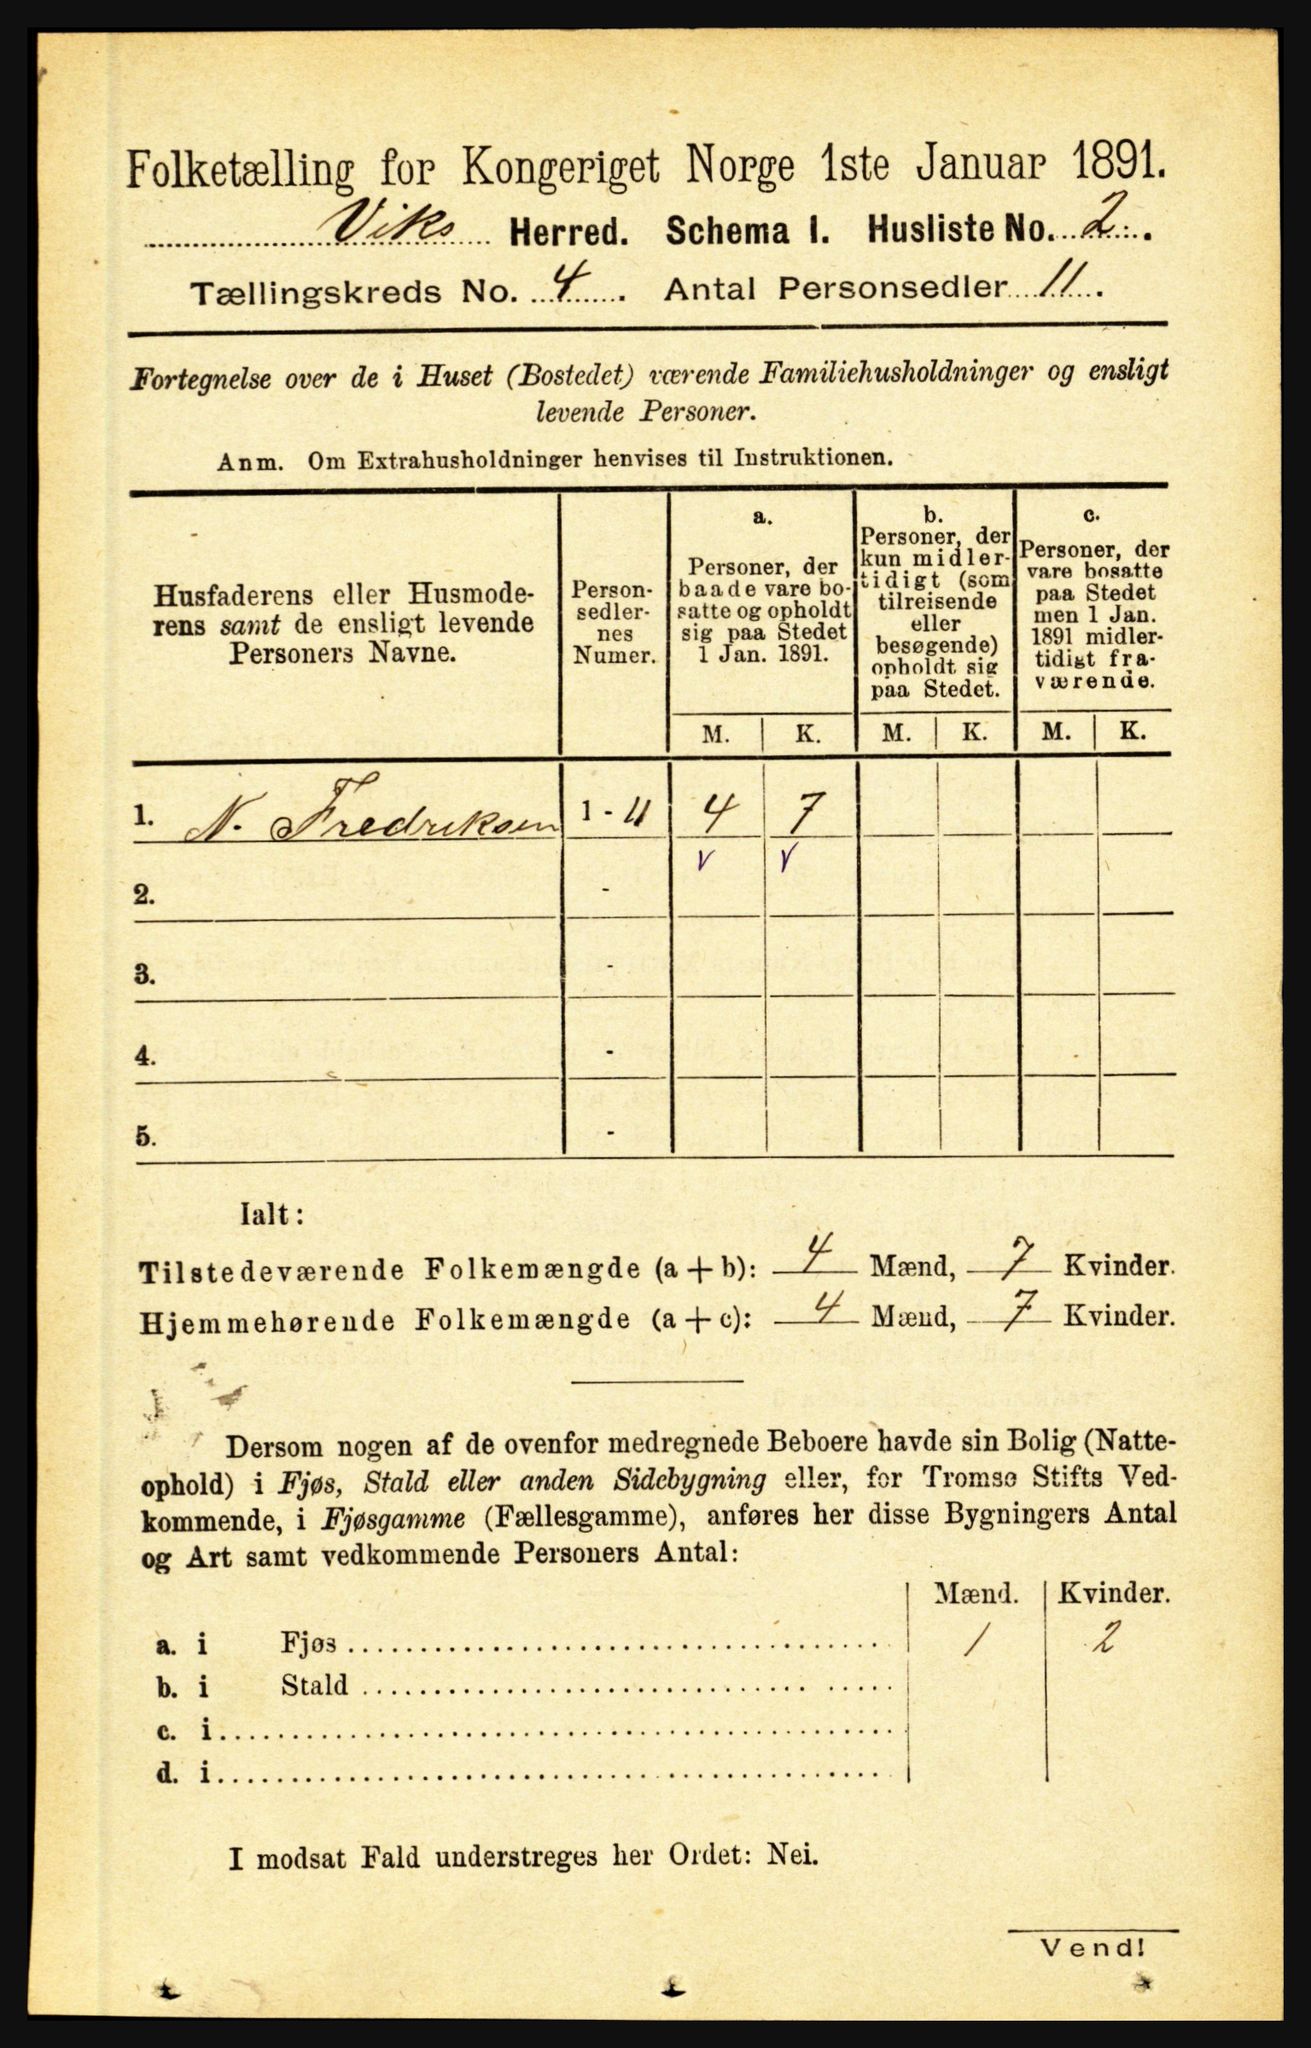 Folketælling for Kongeriget Norge 1ste Januar 1891.
Viks Herred. Schema I. Husliste No. 2.
Tællingskreds No. 4. Antal Personsedler 11.
Fortegnelse over de i Huset (Bostedet) værende Familiehusholdninger og ensligt
levende Personer.
Anm. Om Extrahusholdninger henvises til Instruktionen.
Husfaderens eller Husmode-
rens samt de ensligt levende
Personers Navne.
Person-
sedler-
nes
Numer.
a.
Personer, der
baade vare bo-
satte og opholdt
sig paa Stedet
1 Jan. 1891.
b.
Personer, der
kun midler-
tidigt (som
tilreisende
eller
besøgende)
opholdt sig
paa Stedet.
c.
Personer, der
vare bosatte
paa Stedet
men 1 Jan.
1891 midler-
tidigt fra-
værende.
M. K. M. K. M. K.
1. N. Fredriksen 1 - 11 4 7
v v
2. -
3. -
4. -
5. -
Ialt:
Tilstedeværende Folkemængde (a + b): 4 Mænd, 7 Kvinder.
Hjemmehørende Folkemængde (a + c): 4 Mænd, 7 Kvinder.
Dersom nogen af de ovenfor medregnede Beboere havde sin Bolig (Natte-
ophold) i Fjøs, Stald eller anden Sidebygning eller, for Tromsø Stifts Ved-
kommende, i Fjøsgamme (Fællesgamme), anføres her disse Bygningers Antal
og Art samt vedkommende Personers Antal:
Mænd. Kvinder.
a. i Fjøs 1 2
b. i Stald
c. i
d. i
I modsat Fald understreges her Ordet: Nei.
Vend!